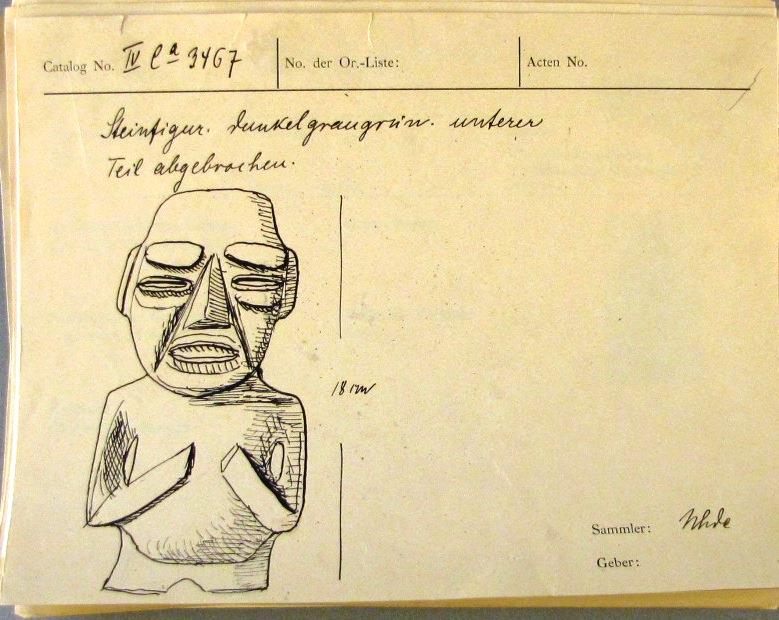 Catalog No. IV Ca 3467 No. der Or.-Liste: Acten No.
Steinfigur. dunkelgraugrün. unterer
Teil abgebrochen.
18 cm
Sammler: Uhde
Geber: